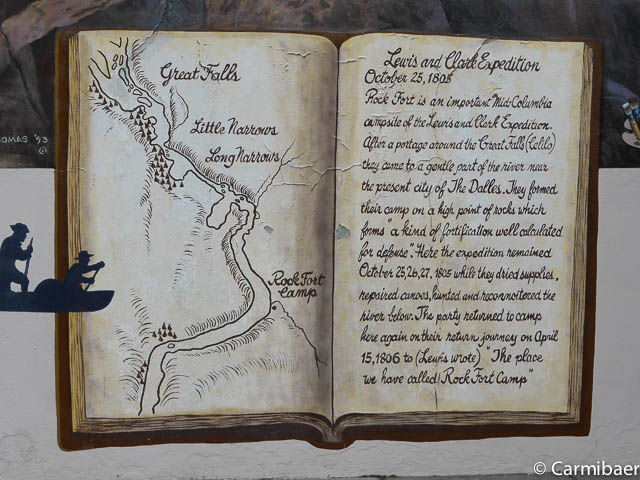 Great Falls
Little Narrows
Long Narrows
Rock Fort
Camp
Lewis and Clark Expedition
October 25, 1805
Rock Fort is an important Mid-Columbia
campsite of the Lewis and Clark Expedition.
After a portage around the Great Falls (Celilo)
they came to a gentle part of the river near
the present city of The Dalles. They formed
their camp on a high point of rocks which
forms "a kind of fortification well calculated
for defense". Here the expedition remained
October 25, 26, 27, 1805 while they dried supplies,
repaired canoes, hunted and reconnoitered the
river below. The party returned to camp
here again on their return journey on April
15, 1806 to (Lewis wrote) "The place
we have called Rock Fort Camp"
OMAS '93
©
© Carmibaer